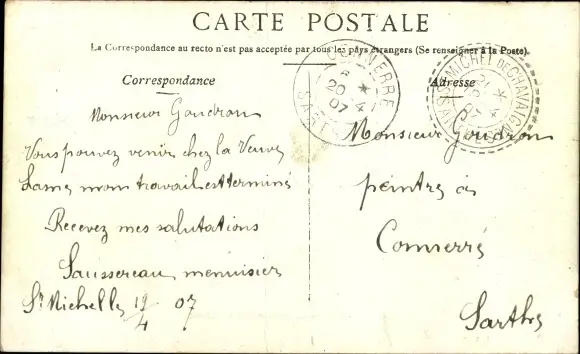 CARTE POSTALE
La Correspondance au recto n'est pas acceptée par tous les pays étrangers (Se renseigner à la Poste).
Correspondance
Monsieur Goudron
Vous pouvez venir chez la Veuve
Lame mon travail est terminé
Recevez mes salutations
Saussereau menuisier
St Michelle 19/4 07
CONNERRÉ
20 4
07
SARTHE
Adresse
St MICHEL DE CHAVAIGNES
Monsieur Goudron
peintre à
Connerré
Sarthe